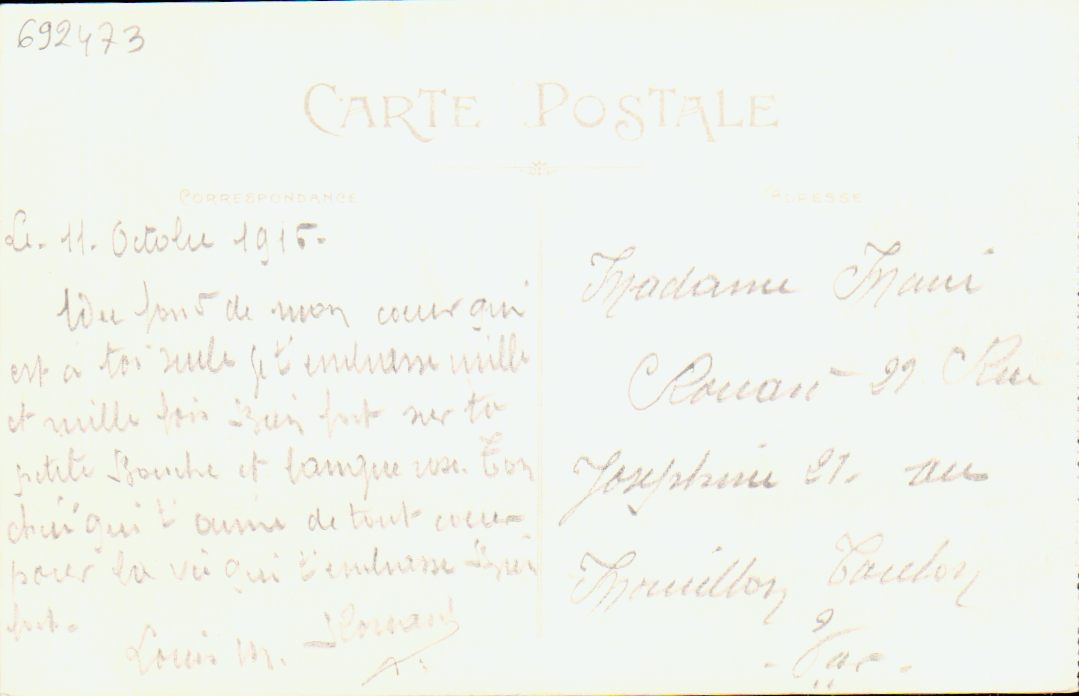 692473
CARTE POSTALE
CORRESPONDANCE
ADRESSE
Le. 11. Octobre 1915.
Du fond de mon cœur qui
est à toi seule je t'embrasse mille
et mille fois Bien fort sur ta
petite Bouche et langue rose. Ton
cheri qui t'aime de tout cœur
pour la vie qui t'embrasse Bien
fort.
Louis M.
Madame
Rouard Rue
Josephine 21. au
Mourillon Toulon
- Var -